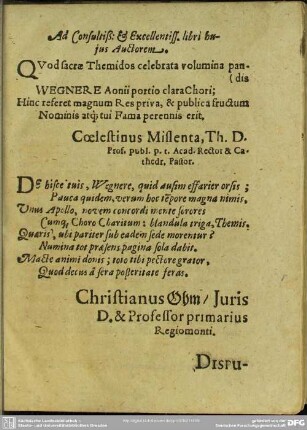 Ad Consultiß: & Excellentiss. libri hu-
jus Auctorem.
QVod sacræ Themidos celebrata volumina pan-
(dis
WEGNERE Aonii portio clara Chori;
Hinc referet magnum Res priva, & publica fructum
Nominis atq́; tui Fama perennis erit.
Cœlestinus Mislenta, Th. D.
Prof. publ. p. t. Acad. Rector & Ca-
thedr. Pastor.
DE hisce tuis, Wegnere, quid ausim effarier orsis;
Pauca quidem, verum hoc tẽpore magna nimis,
Vnus Apollo, novem concordi mente sorores
Cumq, Choro Charitum; blandula triga, Themis,
Quæris, ubi pariter sub eadem sede morentur?
Numina tot præsens pagina sola dabit.
Macte animi donis; toto tibi pectore grator,
Quod decus à sera posteritate feras.
Christianus Ohm/ Juris
D. & Professor primarius
Regiomonti.
DISPU-